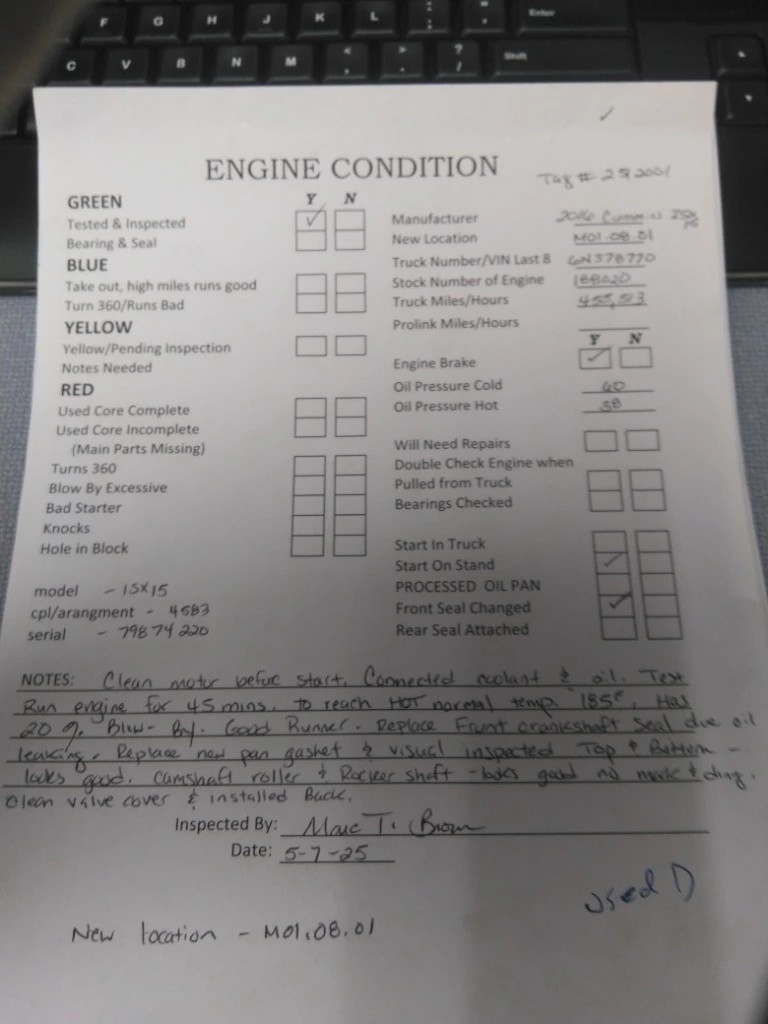 F G H J K L : ; " , Enter
C V B N M < , > . ? / Shift
ENGINE CONDITION
Tag #
GREEN Y N
Tested & Inspected
Bearing & Seal
BLUE
Take out, high miles runs good
Turn 360/Runs Bad
YELLOW
Yellow/Pending Inspection
Notes Needed
RED
Used Core Complete
Used Core Incomplete
(Main Parts Missing)
Turns 360
Blow By Excessive
Bad Starter
Knocks
Hole in Block
model - ISX15
cpl/arangment - 4583
serial - 79874220
Manufacturer 2016 Cummins ISX 15
New Location M01.08.01
Truck Number/VIN Last 8 GN378770
Stock Number of Engine 188020
Truck Miles/Hours 455,513
Prolink Miles/Hours
Y N
Engine Brake
Oil Pressure Cold 40
Oil Pressure Hot 38
Will Need Repairs
Double Check Engine when
Pulled from Truck
Bearings Checked
Start In Truck
Start On Stand
PROCESSED OIL PAN
Front Seal Changed
Rear Seal Attached
NOTES: Clean motor before start. Connected coolant & oil. Test
Run engine for 45 mins. to reach HOT normal temp. 185°F. Has
20 %. Blow-By. Good Runner. Replace Front crankshaft seal due oil
leaking. Replace new pan gasket & visual inspected Top & Bottom -
looks good. Camshaft roller & Rocker shaft - looks good no mark & ding.
Clean valve cover & installed Back.
Inspected By: Marc T. Brown
Date: 5-7-25
used D
New location - M01.08.01